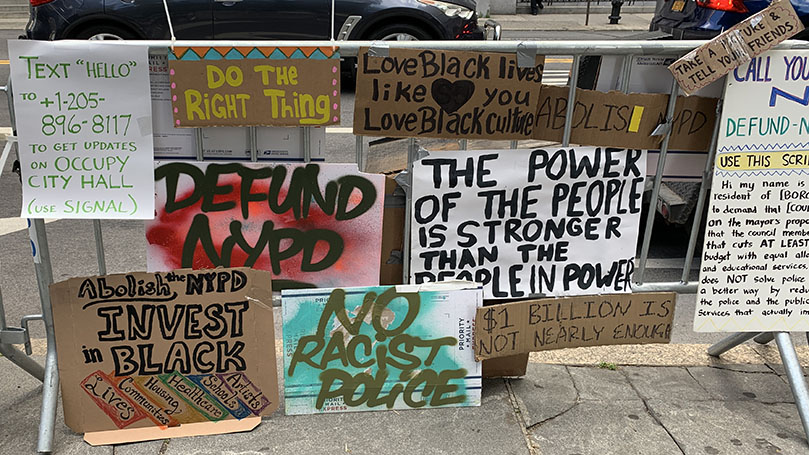 TEXT "HELLO"
TO +1-205-
896-8117
TO GET UPDATES
ON OCCUPY
CITY HALL
(USE SIGNAL)
DO THE
RIGHT THING
Love Black lives
like you
Love Black culture
ABOLISH NYPD
TAKE A PICTURE &
TELL YOUR FRIENDS
DEFUND
NYPD
THE POWER
OF THE PEOPLE
IS STRONGER
THAN THE
PEOPLE IN POWER
CALL YOU
N
DEFUND-N
USE THIS SCRI
Hi my name is
resident of [BOR
to demand that [COU
on the mayor's prop
that the council membe
that cuts AT LEAST
budget with equal allo
and educational services
does NOT solve police
a better way by redu
the police and the publi
Services that actually im
Abolish the NYPD
INVEST
in BLACK
Lives
Communities
Housing
Healthcare
Schools
Artists
NO
RACIST
POLICE
PRIORITY
MAIL
EXPRESS
$1 BILLION IS
NOT NEARLY ENOUGH